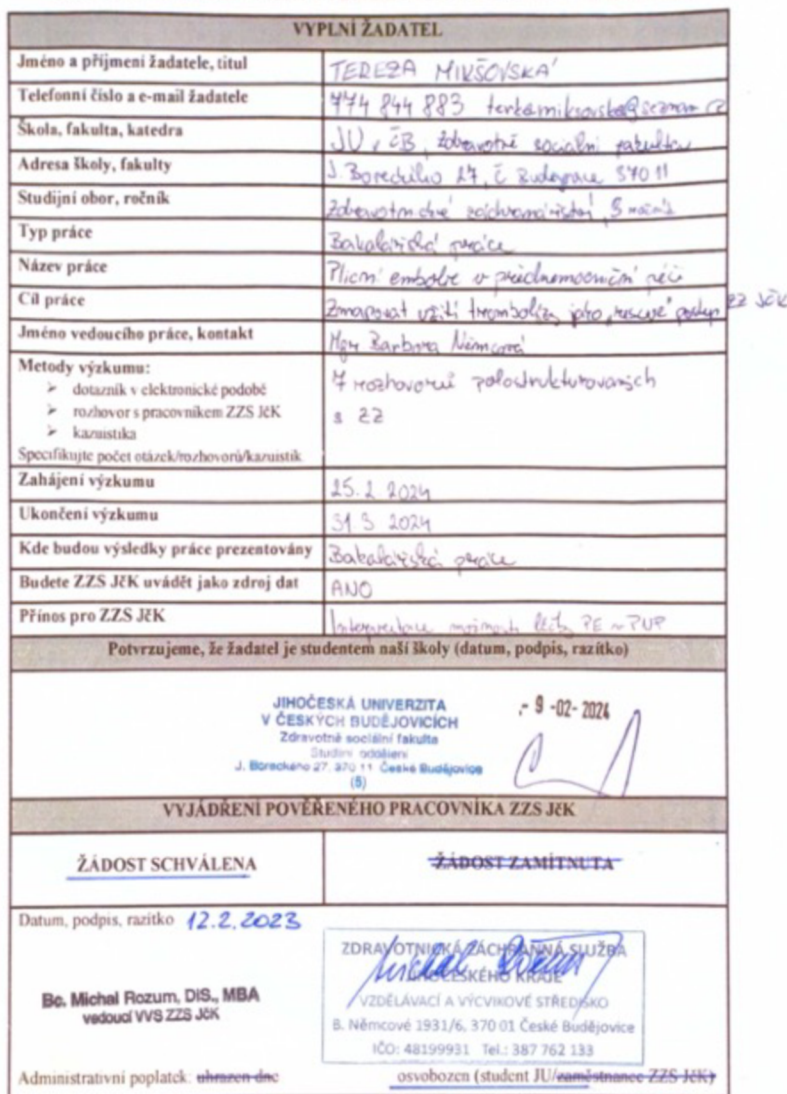 VYPLNÍ ŽADATEL
Jméno a příjmení žadatele, titul TEREZA MIKŠOVSKÁ
Telefonní číslo a e-mail žadatele 774 844 883
Škola, fakulta, katedra JU v ČB, Zdravotně sociální fakulta
Adresa školy, fakulty J. Boreckého 27, Č. Budějovice 370 11
Studijní obor, ročník Zdravotnické záchranářství, 3. ročník
Typ práce Bakalářská práce
Název práce Plicní embolie v přednemocniční péči
Cíl práce Zmapovat užití trombolýzy jako „rescue" postup ZZ JčK
Jméno vedoucího práce, kontakt Mgr. Barbora Němcová
Metody výzkumu: 7 rozhovorů polostrukturovaných
➢ dotazník v elektronické podobě
➢ rozhovor s pracovníkem ZZS JčK s ZZ
➢ kazuistika
Specifikujte počet otázek/rozhovorů/kazuistik
Zahájení výzkumu 2024
Ukončení výzkumu 2024
Kde budou výsledky práce prezentovány Bakalářská práce
Budete ZZS JčK uvádět jako zdroj dat ANO
Přínos pro ZZS JčK PE v PNP
Potvrzujeme, že žadatel je studentem naší školy (datum, podpis, razítko)
JIHOČESKÁ UNIVERZITA
V ČESKÝCH BUDĚJOVICÍCH
Zdravotně sociální fakulta
Studijní oddělení
J. Boreckého 27, 370 11 České Budějovice
(5)
- 9 -02- 2024
VYJÁDŘENÍ POVĚŘENÉHO PRACOVNÍKA ZZS JčK
ŽÁDOST SCHVÁLENA ŽÁDOST ZAMÍTNUTA
Datum, podpis, razítko 12.2.2023
Bc. Michal Rozum, DiS., MBA
vedoucí VVS ZZS JčK
ZDRAVOTNICKÁ ZÁCHRANNÁ SLUŽBA
JIHOČESKÉHO KRAJE
VZDĚLÁVACÍ A VÝCVIKOVÉ STŘEDISKO
B. Němcové 1931/6, 370 01 České Budějovice
IČO: 48199931 Tel.: 387 762 133
Administrativní poplatek: uhrazen dne osvobozen (student JU/zaměstnanec ZZS JčK)